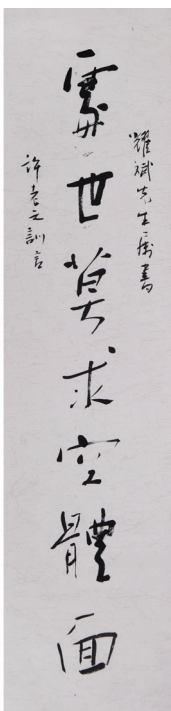 耀斌先生屬書
處世莫求空體面
許訓言